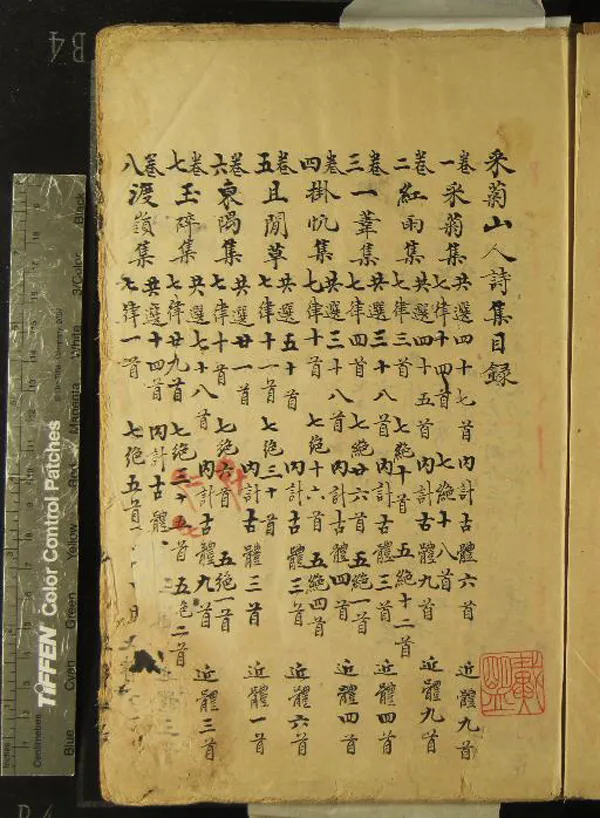 采菊山人詩集目錄
卷一 采菊集 共選四十七首 內計古體六首 近體九首
七律十四首 七絕十八首
卷二 紅雨集 共選四十五首 內計古體九首 近體九首
七律三首 七絕十首 五絕十二首
卷三 一葦集 共選三十八首 內計古體三首 近體四首
七律四首 七絕廿六首 五絕一首
卷四 掛帆集 共選三十八首 內計古體四首 近體四首
七律十首 七絕十六首 五絕四首
卷五 且閒草 共選五十首 內計古體三首 近體六首
七律十一首 七絕三十首
卷六 東隅集 共選廿一首 內計古體三首 近體一首
七律十首 七絕六首 五絕一首
卷七 玉碎集 共選七十八首 內計古體九首 近體三首
七律廿九首 七絕三十首 五絕二首
卷八 渡嶺集 共選十四首 內計古體
七律一首 七絕五首
TIFFEN Color Control Patches
Blue Cyan Green Yellow Red Magenta White 3/Color Black
Inches
Centimetres
B4